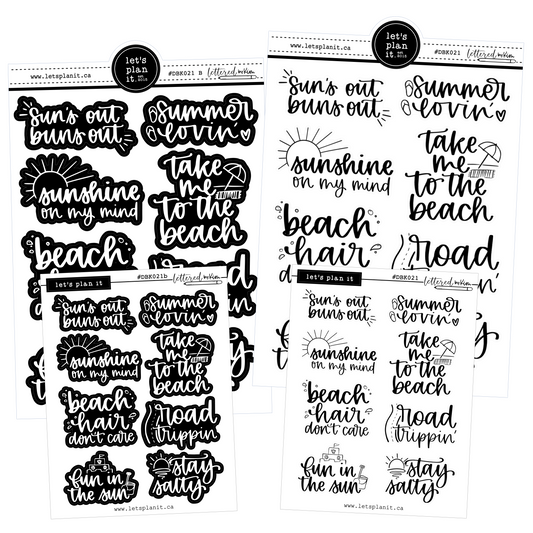 let's
plan
it.
EST. 2015
www.letsplanit.ca
#DBK021 B
lettered. mkim
sun's out
buns out
summer
lovin'
sunshine
on my mind
take
me
to the
beach
beach
let's
plan
it.
EST. 2015
www.letsplanit.ca
#DBK021
lettered. mkim
sun's out
buns out
summer
lovin'
sunshine
on my mind
take
me
to the
beach
beach
hair
road
let's plan it
#DBK021b
lettered. mkim
sun's out
buns out
summer
lovin'
sunshine
on my mind
take
me
to the
beach
beach
hair
don't care
road
trippin'
fun in
the sun
stay
salty
www.letsplanit.ca
let's plan it
#DBK021
lettered. mkim
sun's out
buns out
summer
lovin'
sunshine
on my mind
take
me
to the
beach
beach
hair
don't care
road
trippin'
fun in
the sun
stay
salty
www.letsplanit.ca